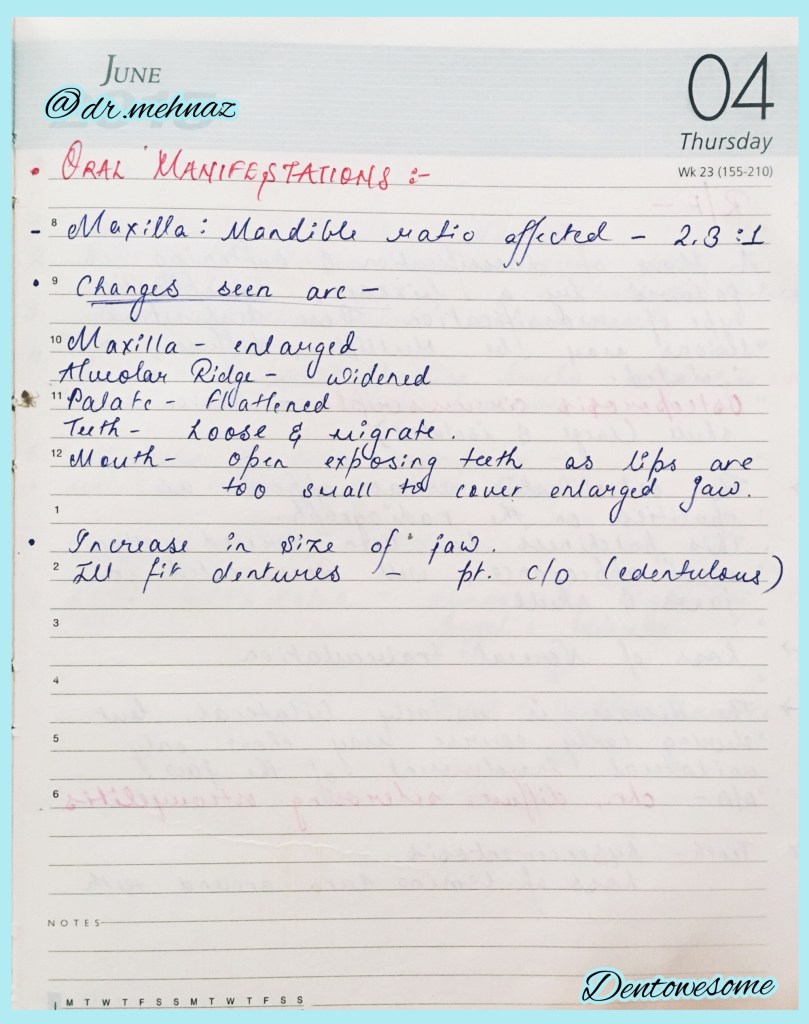 JUNE
@dr.mehnaz
04
Thursday
Wk 23 (155-210)
• ORAL MANIFESTATIONS :-
- 8 Maxilla : Mandible ratio affected - 2.3 :1
• 9 Changes seen are -
10 Maxilla - enlarged
Alveolar Ridge - widened
11 Palate - Flattened
Teeth - Loose & migrate.
12 Mouth - open exposing teeth as lips are
too small to cover enlarged jaw.
1
• Increase in size of jaw.
2 Ill fit dentures - pt. c/o (edentulous)
3
4
5
6
NOTES
M T W T F S S M T W T F S S
Dentowesome